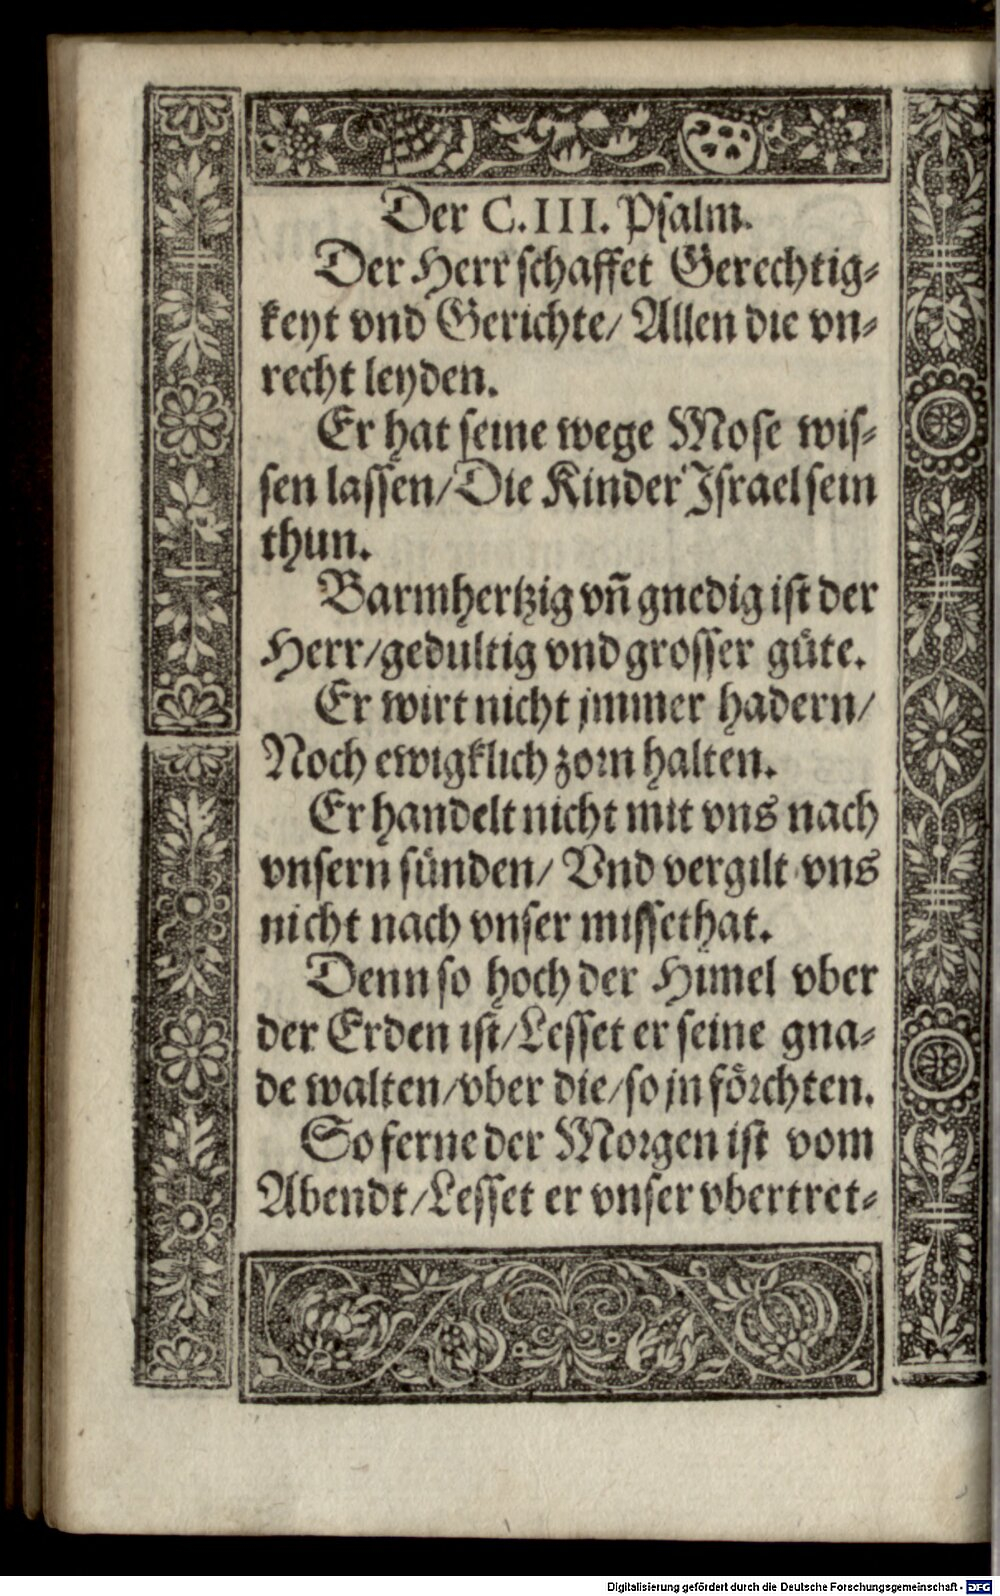 Der C.III. Psalm.
Der Herr schaffet Gerechtig⸗
keyt vnd Gerichte/ Allen die vn⸗
recht leyden.
Er hat seine wege Mose wis⸗
sen lassen/Die Kinder Israel sein
thun.
Barmhertzig vñ gnedig ist der
Herr/gedultig vnd grosser güte.
Er wirt nicht jmmer hadern/
Noch ewigklich zorn halten.
Er handelt nicht mit vns nach
vnsern sünden/ Vnd vergilt vns
nicht nach vnser missethat.
Denn so hoch der Himel vber
der Erden ist/Lesset er seine gna⸗
de walten/vber die/so jn förchten.
So ferne der Morgen ist vom
Abendt/Lesset er vnser vbertret⸗
Digitalisierung gefördert durch die Deutsche Forschungsgemeinschaft - DFG